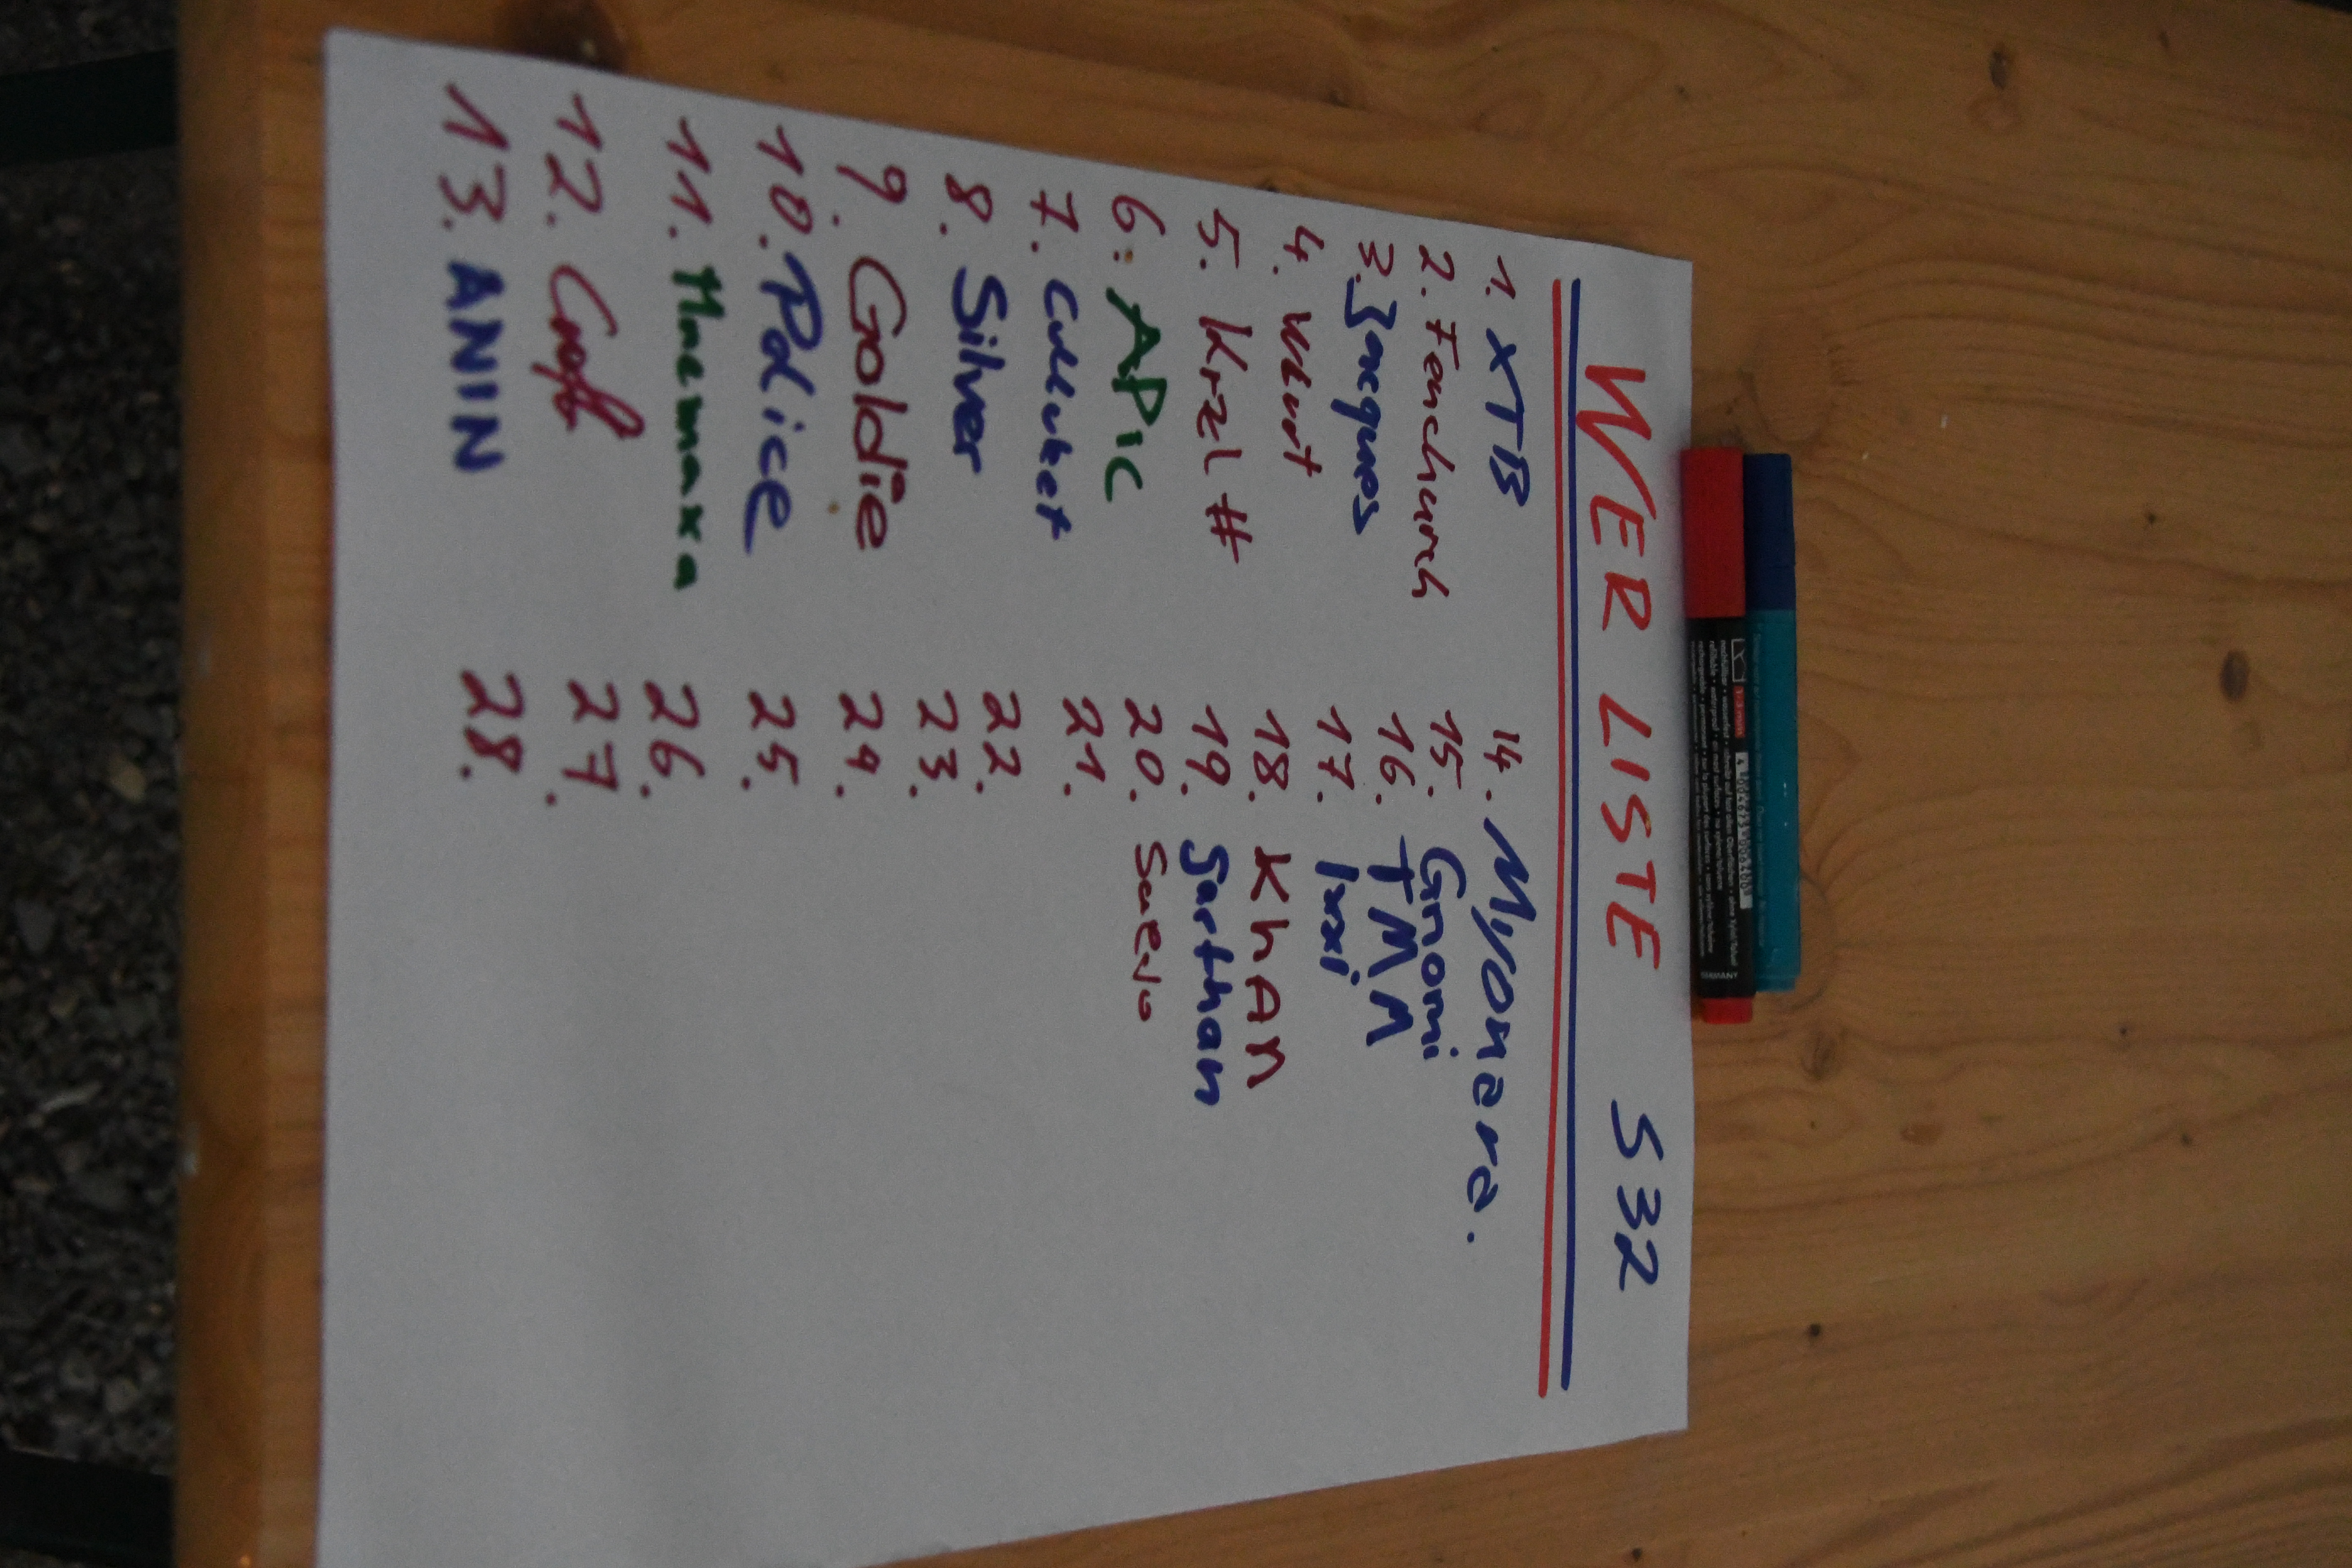 WER LISTE S32
1. XTB
2. Fenchurch
3. Jacques
4.
5. Krzl #
6. APIC
7.
8. Silver
9. Goldie
10. Police
11. Maemaxa
12.
13. ANIN
14. Myonera.
15. Gnomi
16. TMM
17. luxi
18. KhAn
19. Sarthan
20.
21.
22.
23.
24.
25.
26.
27.
28.
GERMANY